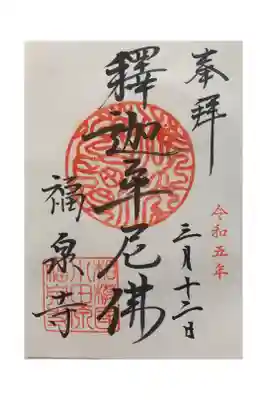 奉拝
令和五年
三月十二日
釋迦牟尼佛
福泉寺